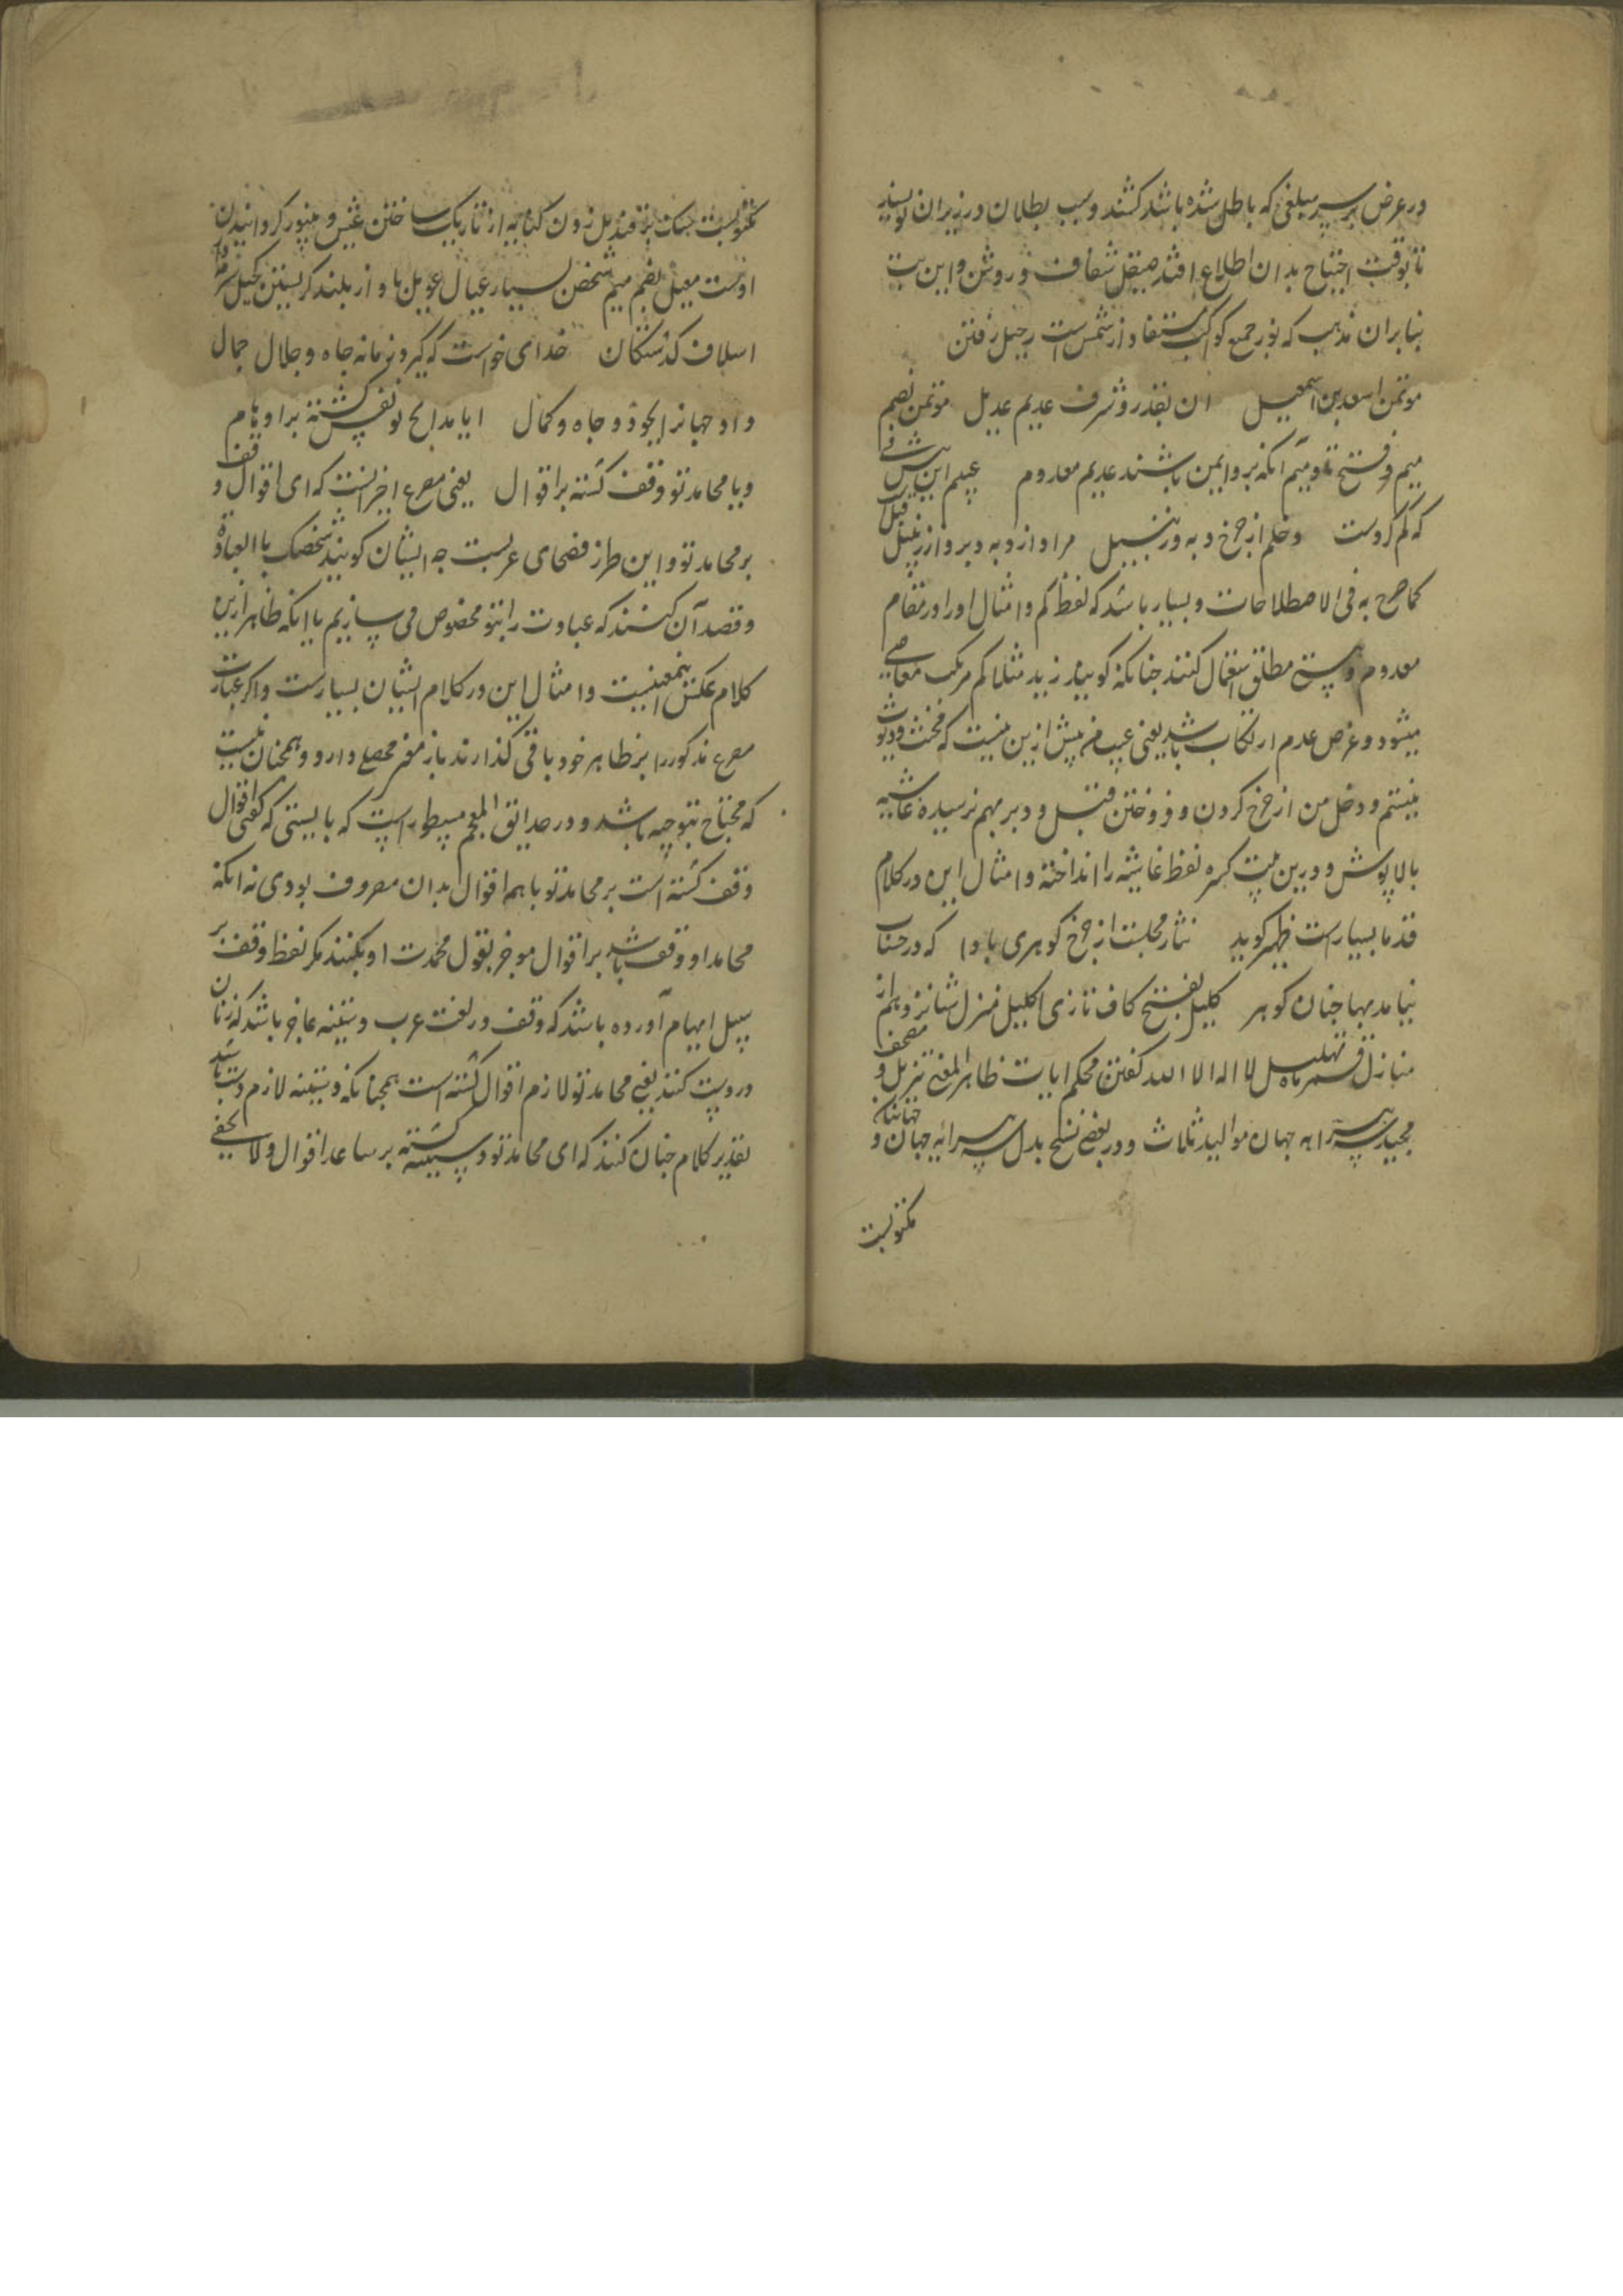 در عرض بر سر مبلغی که باطل شده باشد کشند و سبب بطلان در زیر ان نویسند
تا بوقت احتیاج بدان اطلاع افتد صیقل شفاف و روشن و این بیت
بنا بران مذهب که نور جمیع کواکب مستفاد از شمس است رحیل رفتن
موتمن اسعد بن اسمعیل ان بقدر و شرف عدیم عدیل موتمن بضم
میم و فتح تا و میم انکه برو ایمن باشند عدیم معدوم عیبم این پیش
که کم کردست دخلم از چرخ و به وزنبیل مراد از دبه و
کما صرح به فی الاصطلاحات و بسیار باشد که لفظ کم و امثال اورا در مقام
معدوم و نیستی مطلق استعمال کنند چنانکه کویند زید مثلا کم مرتکب معاصی
میشود و غرض عدم ارتکاب باشد یعنی عیب من پیش ازین نیست که مخنث و دیوث
نیستم و دخل من از چرخ کردن و فروختن قبل و دبر بهم نرسیده غاشیه
بالاپوش و درین بیت کسره لفظ غاشیه را انداخته و امثال این در کلام
قدما بسیار است ظهیر کوید نثار مجلست از چرخ کوهری بادا که در حساب
نیاید بها چنان کوهر کلیل بفتح کاف تازی اکلیل منزل شانزدهم از
منازل قمر ماه تهلیل لا اله الا الله کفتن محکم ایات ظاهر المعنی تنزیل مصحف
مجید سرایه جهان موالید ثلاث و در بعضی نسخ بدل سرایه جهان و
مکتوبست
مکتوبست سنک بر قندیل زدن کنایه از تاریک ساختن عیش و بی نور کردانیدن
اوست معیل بضم میم شخص بسیار عیال عویل باواز بلند کریستن کحیل سرمه
اسلاف کذشتکان خدای خواست که کیرد زمانه جاه و جلال جمال
داد جهانرا بجود و جاه و کمال ایا مدایح تو نقش کشته بر اوهام
و یا محامد تو وقف کشته بر اقوال یعنی مصرع اخر انست که ای اقوال وقف
بر محامد تو و این طرز فصحای عربست چه ایشان کویند نخصک بالعبادة
و قصد آن کنند که عبادت را بتو مخصوص می سازیم با انکه ظاهر این
کلام عکس اینمعنیست و امثال این در کلام ایشان بسیارست و اکر عبارت
مصرع مذکور را بر ظاهر خود باقی کذارند باز محصلی دارد و همچنان نیست
که محتاج بتوجیه باشد و در حدایق المعجم مسطور است که بایستی که کفتی اقوال
وقف کشته است بر محامد تو تا همه اقوال بدان مصروف بودی نه انکه
محامد او وقف باشد بر اقوال موخر بقول محمدت او بکنند مکر لفظ وقف بر
سبیل ایهام آورده باشد که وقف در لغت عرب دستینه عاج باشد که زنان
در دست کنند یعنی محامد تو لازم اقوال کشته است همچنانکه دستینه لازم دست باشد
تقدیر کلام چنان کنند که ای محامد تو دستینه کشته بر ساعد اقوال و لا یخفی